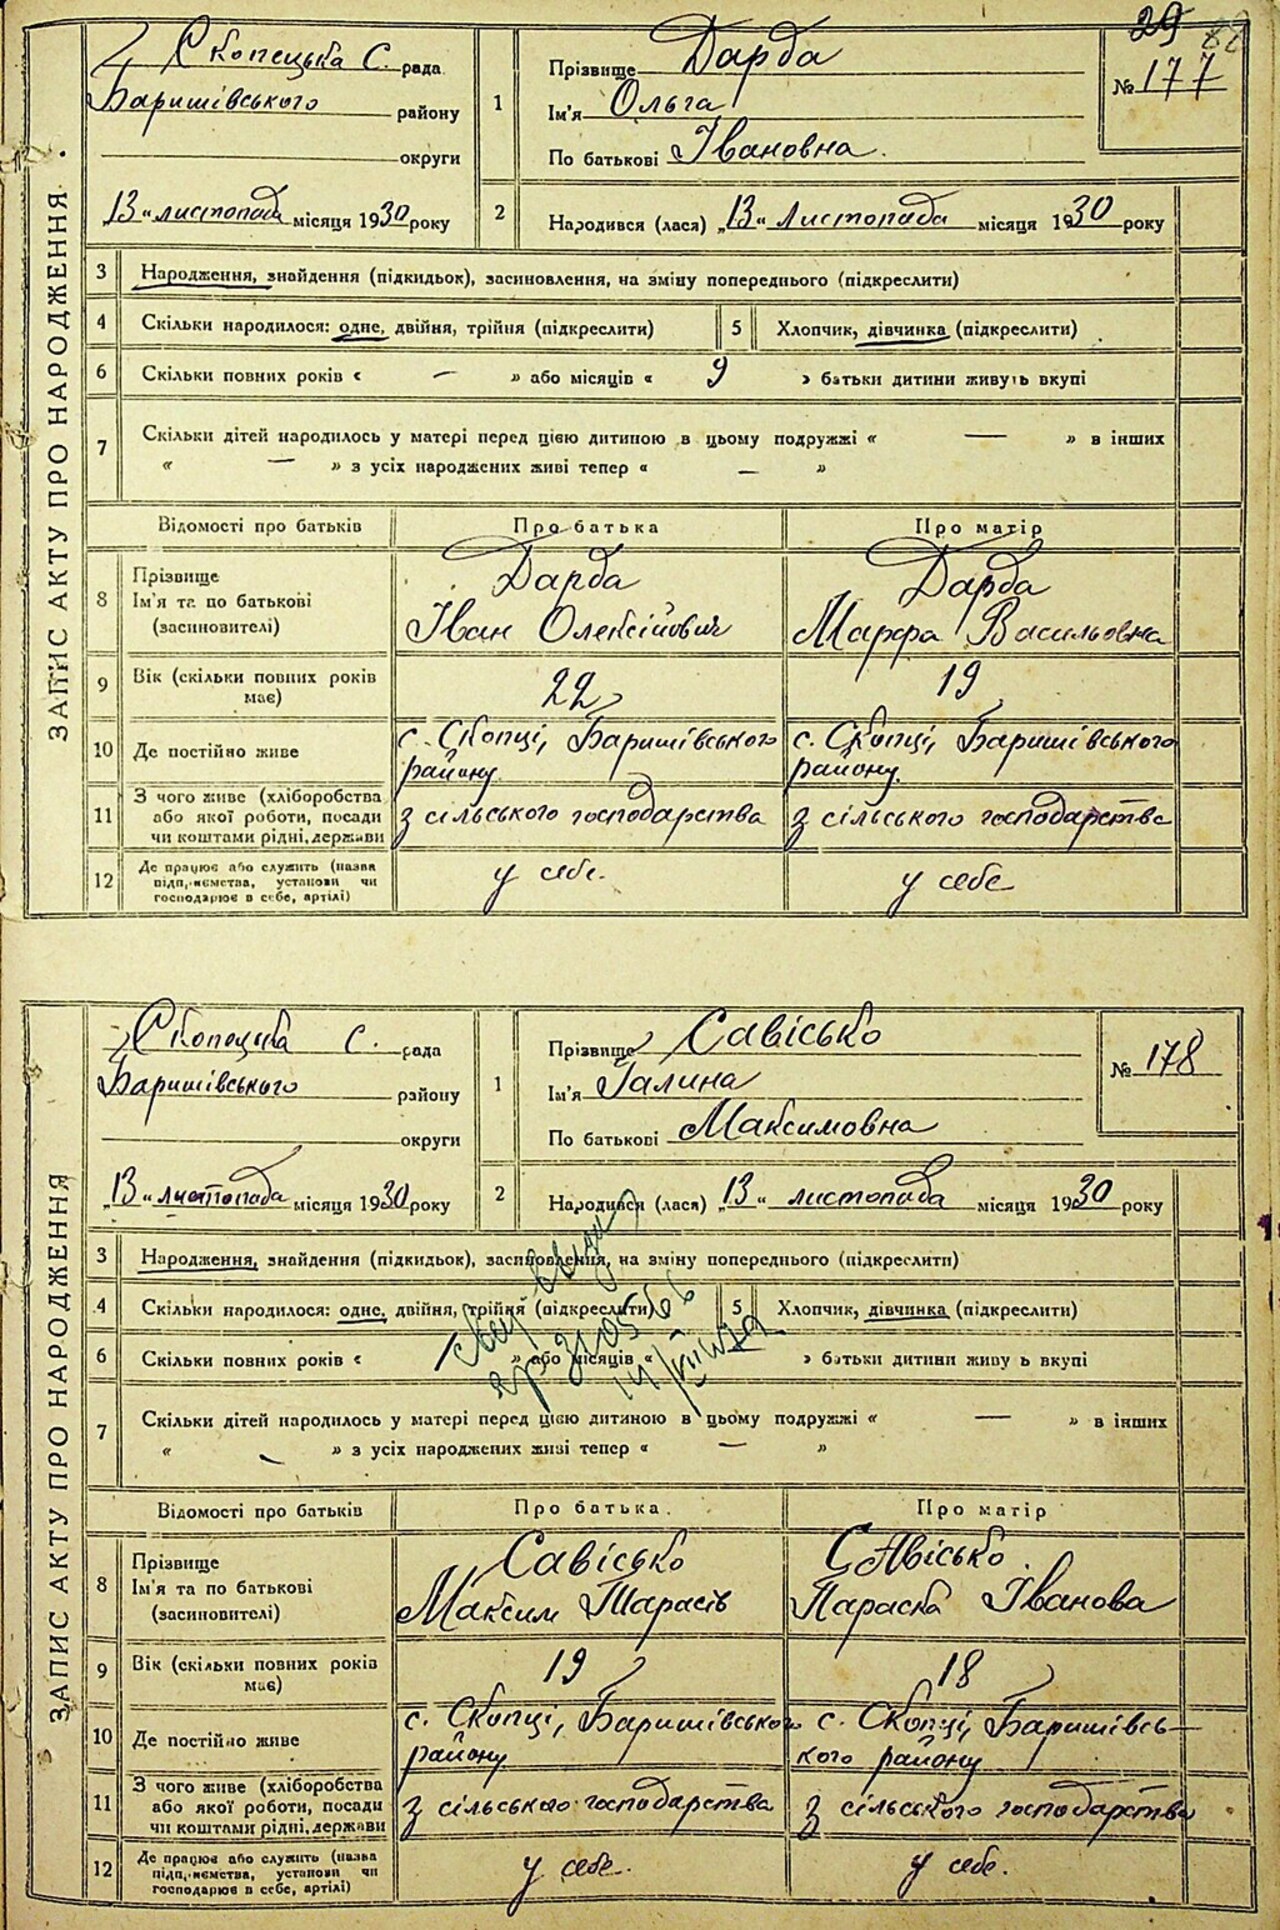 29
Скопецька С. рада
Баришівського району
округи
1
Прізвище Дарба
Ім'я Ольга
По батькові Івановна.
№ 177
„13“ листопада місяця 1930 року
2
Народився (лася) „13“ Листопада місяця 1930 року
ЗАПИС АКТУ ПРО НАРОДЖЕННЯ.
3 Народження, знайдення (підкидьок), засиновлення, на зміну попереднього (підкреслити)
4 Скільки народилося: одне, двійня, трійня (підкреслити) 5 Хлопчик, дівчинка (підкреслити)
6 Скільки повних років « — » або місяців « 9 » батьки дитини живуть вкупі
7 Скільки дітей народилось у матері перед цією дитиною в цьому подружжі « — » в інших
« — » з усіх народжених живі тепер « — »
Відомості про батьків Про батька Про матір
8 Прізвище Ім'я та по батькові (засиновителі)
Дарба Дарба
Іван Олексійович Марфа Васильовна
9 Вік (скільки повних років має) 22 19
10 Де постійно живе с. Скопці, Баришівського с. Скопці, Баришівського
району. району.
11 З чого живе (хліборобства або якої роботи, посади чи коштами рідні, держави
з сільського господарства з сільського господарства
12 Де працює або служить (назва підприємства, установи чи господарює в себе, артілі)
у себе. у себе
Скопецька С. рада
Баришівського району
округи
1
Прізвище Савісько
Ім'я Галина
По батькові Максимовна
№ 178
„13“ листопада місяця 1930 року
2
Народився (лася) „13“ листопада місяця 1930 року
ЗАПИС АКТУ ПРО НАРОДЖЕННЯ
3 Народження, знайдення (підкидьок), засиновлення, на зміну попереднього (підкреслити)
4 Скільки народилося: одне, двійня, трійня (підкреслити) 5 Хлопчик, дівчинка (підкреслити)
6 Скільки повних років « 1 » або місяців « » батьки дитини живу ь вкупі
7 Скільки дітей народилось у матері перед цією дитиною в цьому подружжі « — » в інших
« — » з усіх народжених живі тепер « — »
Відомості про батьків Про батька. Про матір
8 Прізвище Ім'я та по батькові (засиновителі)
Савісько Савісько.
Максим Тарасів Параска Іванова
9 Вік (скільки повних років має) 19 18
10 Де постійно живе с. Скопці, Баришівського с. Скопці, Баришівсь-
району кого району
11 З чого живе (хліборобства або якої роботи, посади чи коштами рідні, держави
з сільського господарства з сільського господарства
12 Де працює або служить (назва підприємства, установи чи господарює в себе, артілі)
у себе. у себе.